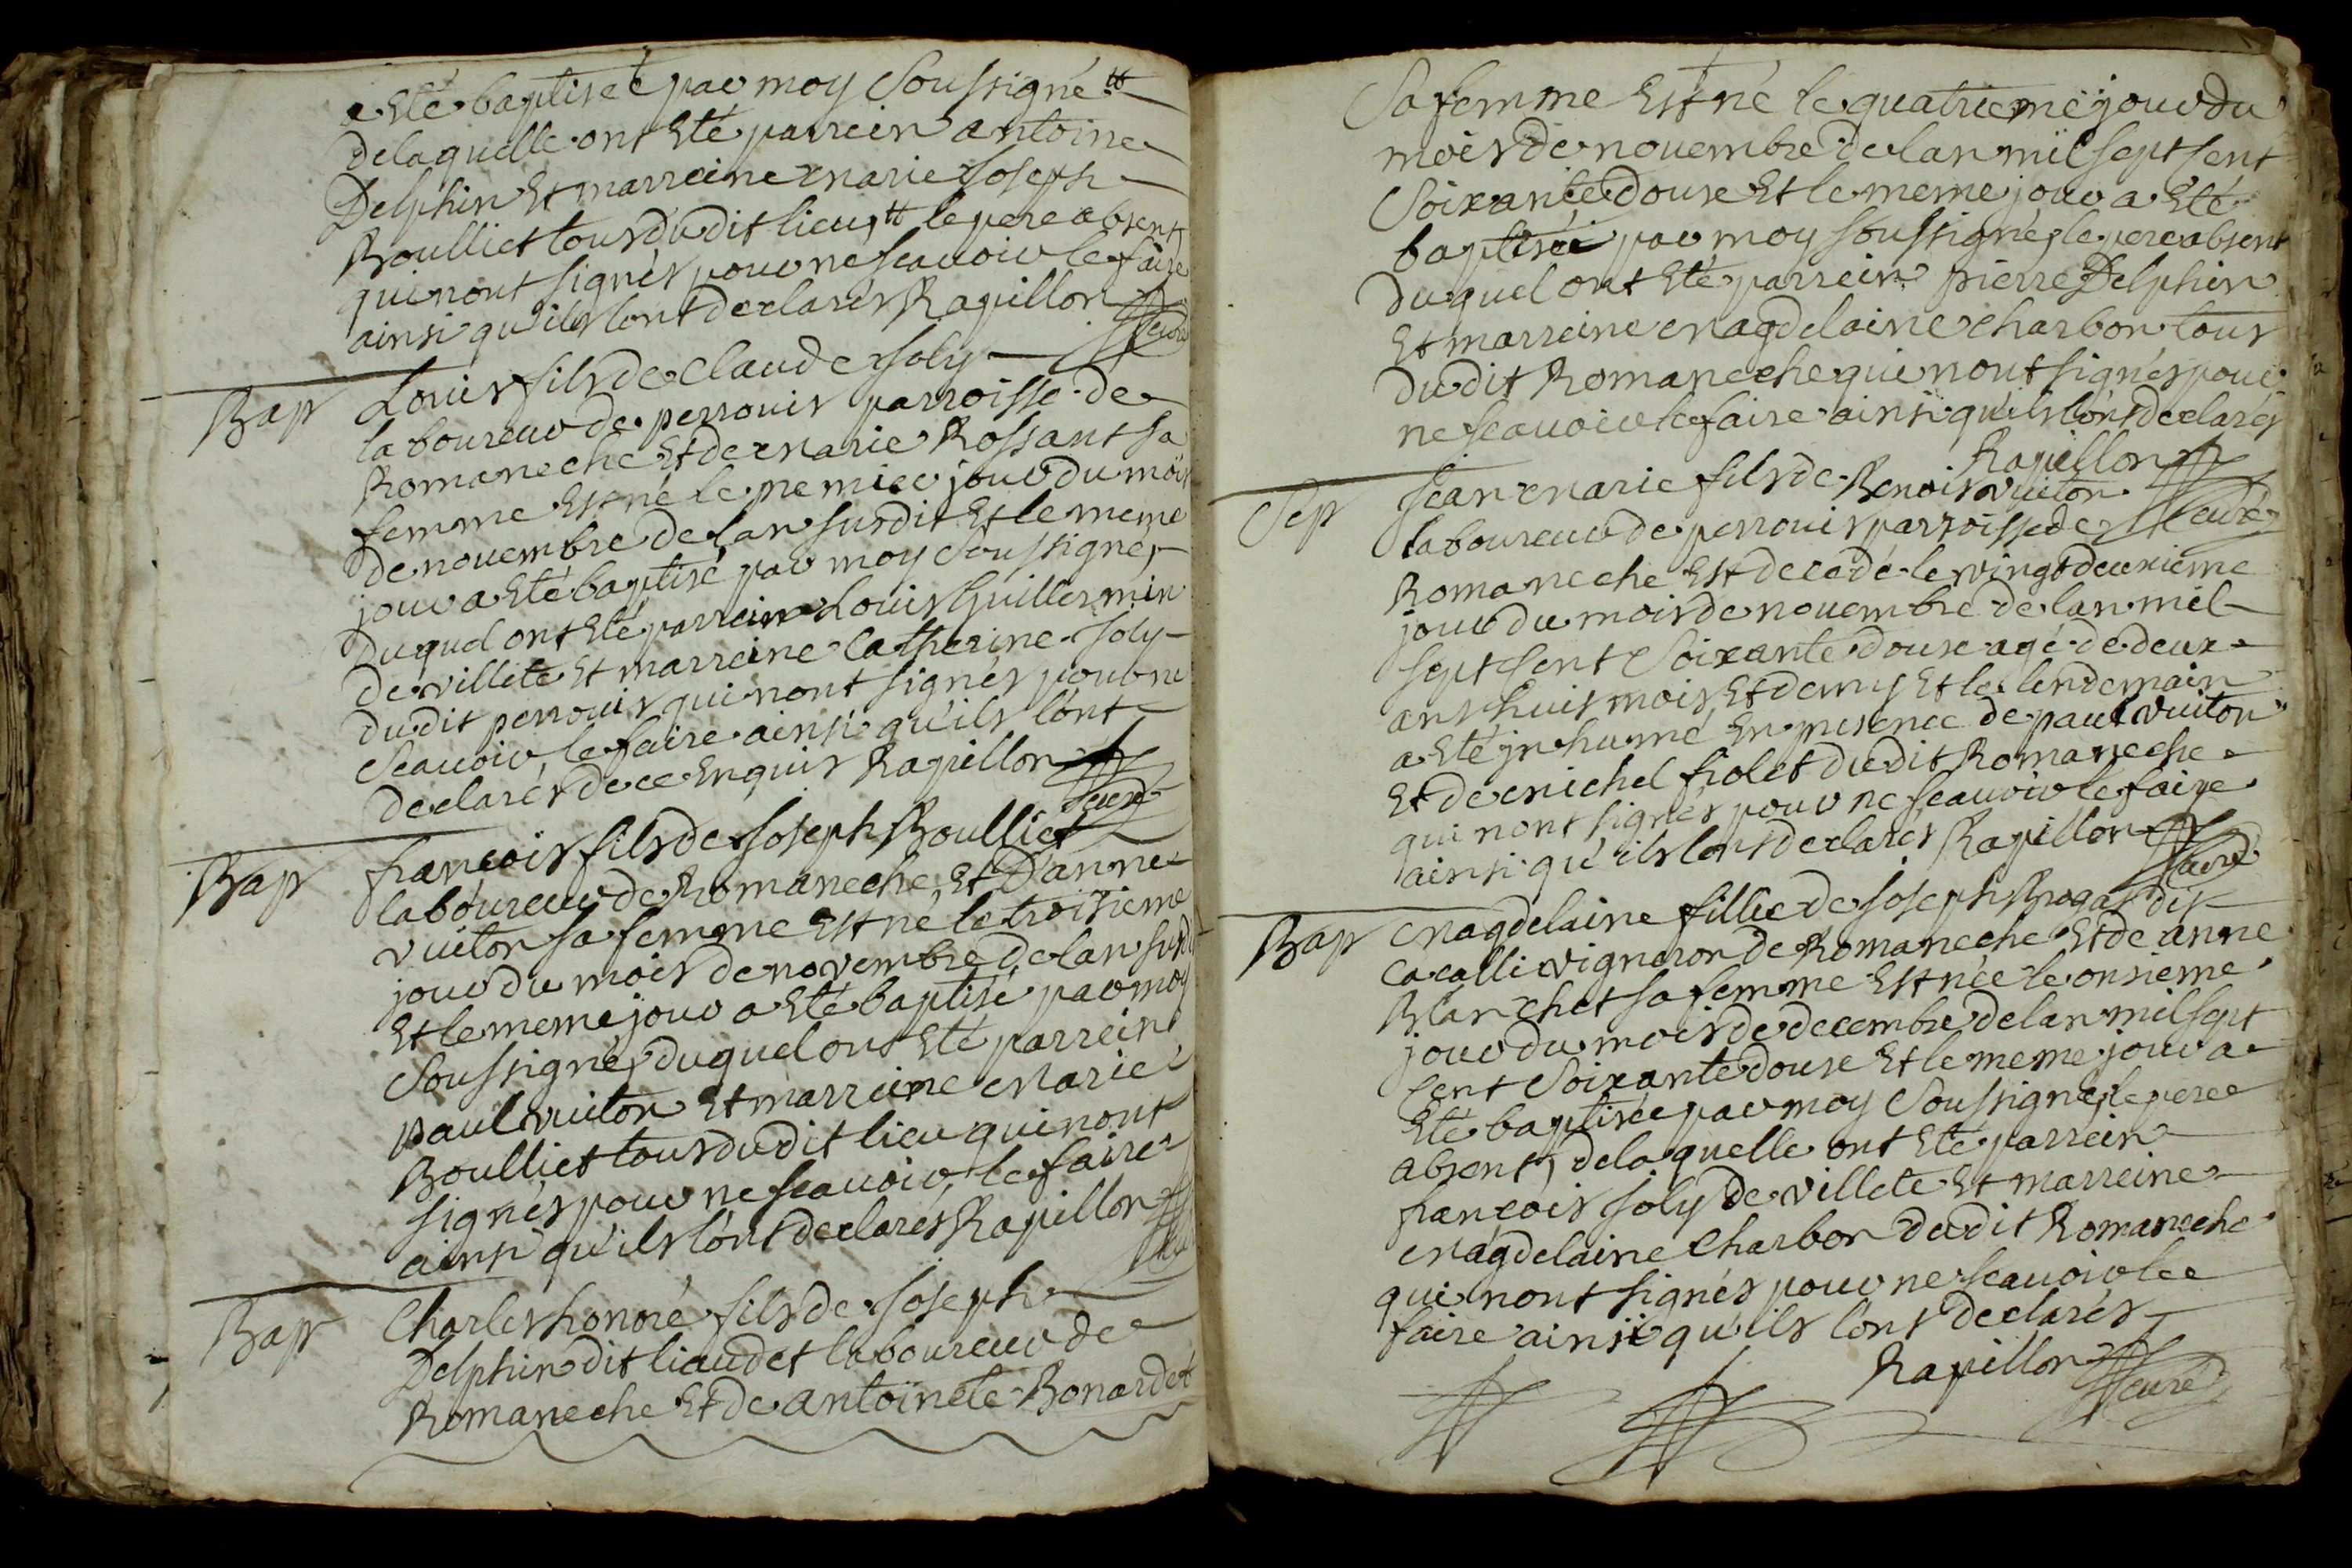 a Eté baptiseé par moy Soussigné #
delaquelle ont Eté parrein antoine
Delphin Et marreine marie Joseph
Boulliet tous dudit lieu, # le pere absent
qui nont signés pour ne scavoir le faire
ainsi qu'ils lont declarés Rapillon
curé
Bap Louis fils de Claude Joly
laboureur de perrouis parroisse de
Romaneche Et de marie Rossant sa
femme Est né le premier jour du mois
de novembre de lan susdit Et le meme
jour a Eté baptisé par moy Soussigné,
duquel ont Eté parrein Louis Guillermin
de villete Et marreine Catherine Joly
dudit perrouis qui nont signés pour ne
Scavoir le faire ainsi qu'ils lont
declarés de ce Enquis Rapillon
curé
Bap francois fils de Joseph Boulliet
laboureur de Romaneche, Et D'anne
vuiton sa femme Est né le troisieme
jour du mois de novembre de lan susdit
Et le meme jour a Eté baptisé par moy
Soussigné, duquel ont Eté parrein
paul vuiton Et marreine marie
Boulliet tous dudit lieu qui nont
signés pour ne scavoir le faire
ainsi qu'ils lont declarés Rapillon
curé
Bap Charles honoré fils de Joseph
Delphin dit liaudet laboureur de
Romaneche Et de antoinete Bonardet
Sa femme Est né le quatrieme jour du
mois de novembre de lan mil sept sent
Soixante douse Et le meme jour a Eté
baptisé par moy soussigné, le pere absent
duquel ont Eté parrein pierre Delphin
Et marreine magdelaine Charbon tous
dudit Romaneche qui nont signés pour
ne scavoir le faire ainsi qu'ils lont declarés
Rapillon
curé
Sep Jean marie fils de Benois vuiton
laboureur de perrouis parroisse de
Romaneche Est decedé le vingt deuxieme
jour du mois de novembre de lan mil
sept sent Soixante douse agé de deux
ans huit mois Et demy Et le lendemain
a Eté jnhumé En presence de paul vuiton
Et de michel fiolet dudit Romaneche
qui nont signés pour ne scavoir le faire
ainsi qu'ils lont declarés Rapillon
curé
Bap magdelaine fillie de Joseph Brogat dit
Cavalli vigneron de Romaneche Et de anne
Blanchet sa femme Est née le onsieme
jour du mois de decembre de lan mil sept
sent Soixante douse Et le meme jour a
Eté baptisée par moy Soussigné, le pere
absent, delaquelle ont Eté parrein
francois Joly de villete Et marreine
magdelaine Charbon dudit Romaneche
qui nont signés pour ne scavoir le
faire ainsi qu'ils lont declarés
Rapillon
curé